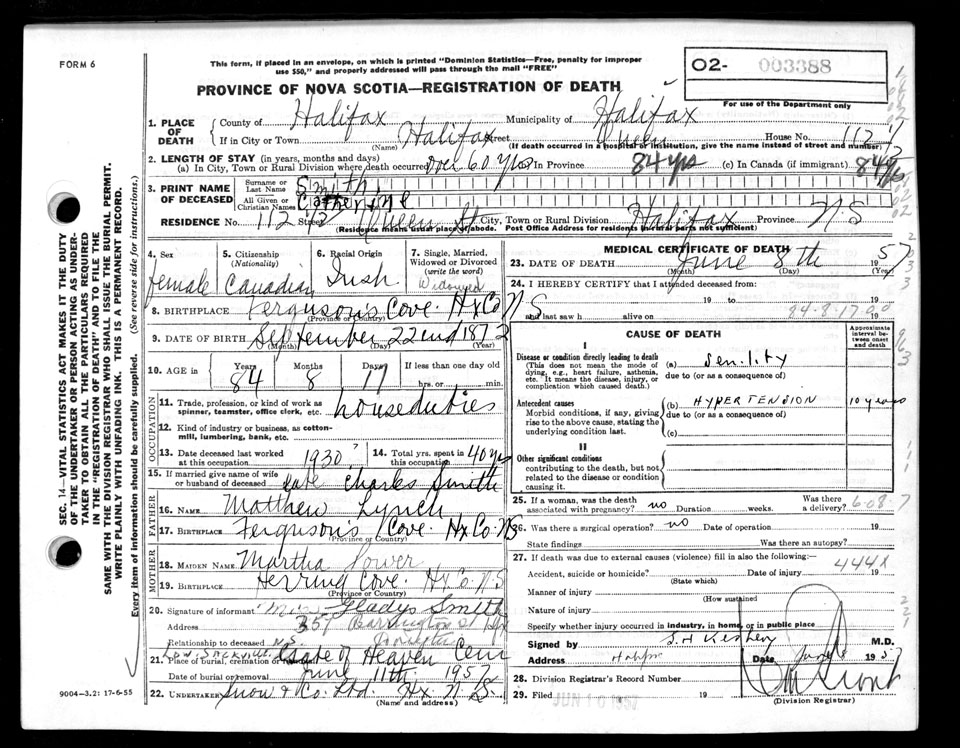 FORM 6
This form, if placed in an envelope, on which is printed "Dominion Statistics—Free, penalty for improper
use $50," and properly addressed will pass through the mail "FREE"
O2- 003388
For use of the Department only
PROVINCE OF NOVA SCOTIA—REGISTRATION OF DEATH
1. PLACE OF DEATH
County of Halifax Municipality of Halifax
If in City or Town Halifax (Name) Street Queen House No. 112½
(If death occurred in a hospital or institution, give the name instead of street and number)
2. LENGTH OF STAY (in years, months and days)
(a) In City, Town or Rural Division where death occurred Over 60 yrs In Province 84 yrs (c) In Canada (if immigrant) 84 yrs
3. PRINT NAME OF DECEASED
Surname or Last Name Smith
All Given or Christian Names Catherine
RESIDENCE No. 112½ Street Queen St City, Town or Rural Division Halifax Province N S
(Residence means usual place of abode. Post Office Address for residents in rural parts not sufficient)
4. Sex female
5. Citizenship (Nationality) Canadian
6. Racial Origin Irish
7. Single, Married, Widowed or Divorced (write the word) Widowed
8. BIRTHPLACE Ferguson's Cove. Hx Co N S
(Province or Country)
9. DATE OF BIRTH September 22nd 1872
(Month) (Day) (Year)
10. AGE in Years 84 Months 8 Days 17 If less than one day old
hrs. or min.
OCCUPATION
11. Trade, profession, or kind of work as spinner, teamster, office clerk, etc. houseduties
12. Kind of industry or business, as cotton-mill, lumbering, bank, etc.
13. Date deceased last worked at this occupation 1930?
14. Total yrs. spent in this occupation 40 yrs
15. If married give name of wife or husband of deceased late Charles Smith
FATHER
16. NAME Matthew Lynch
17. BIRTHPLACE Ferguson's Cove. Hx Co. N S
(Province or Country)
MOTHER
18. MAIDEN NAME Martha Power
19. BIRTHPLACE Herring Cove. Hx Co. N. S
(Province or Country)
20. Signature of informant Gladys Smith
Address 357 Barrington St Hfx
Relationship to deceased N.S. Daughter
Low. Sackville.
21. Place of burial, cremation or removal Gate of Heaven Cem
Date of burial or removal June 11th 1957
22. UNDERTAKER Snow & Co. Ltd. Hx N S.
(Name and address)
MEDICAL CERTIFICATE OF DEATH
23. DATE OF DEATH June 8th 1957
(Month) (Day) (Year)
24. I HEREBY CERTIFY that I attended deceased from:
19 to 19
and last saw h alive on 19
84-8-17-90
CAUSE OF DEATH
Approximate interval between onset and death
I
Disease or condition directly leading to death
(This does not mean the mode of dying, e.g., heart failure, asthenia, etc. It means the disease, injury, or complication which caused death.)
(a) Senility
due to (or as a consequence of)
Antecedent causes
Morbid conditions, if any, giving rise to the above cause, stating the underlying condition last.
(b) HYPERTENSION 10 years
due to (or as a consequence of)
(c)
II
Other significant conditions
contributing to the death, but not related to the disease or condition causing it.
25. If a woman, was the death associated with pregnancy? no Duration weeks. Was there a delivery?
6087
26. Was there a surgical operation? no Date of operation 19
State findings Was there an autopsy?
27. If death was due to external causes (violence) fill in also the following:—
444X
Accident, suicide or homicide? Date of injury 19
(State which)
Manner of injury
(How sustained)
Nature of injury
Specify whether injury occurred in industry, in home, or in public place
Signed by M.D.
Address Halifax Date June 1957
28. Division Registrar's Record Number
29. Filed JUN 10 1957 19
(Division Registrar)
SEC. 14—VITAL STATISTICS ACT MAKES IT THE DUTY
OF THE UNDERTAKER OR PERSON ACTING AS UNDERTAKER
TO OBTAIN ALL THE PARTICULARS REQUIRED
IN THE "REGISTRATION OF DEATH" AND TO FILE THE
SAME WITH THE DIVISION REGISTRAR WHO SHALL ISSUE THE BURIAL PERMIT.
WRITE PLAINLY WITH UNFADING INK. THIS IS A PERMANENT RECORD.
Every item of information should be carefully supplied. (See reverse side for instructions.)
9004-3.2: 17-6-55